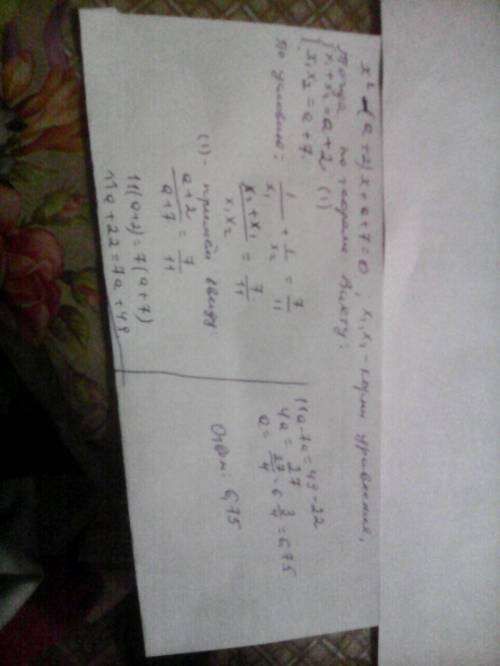 x² - (a+2)x + a+7 = 0, x₁, x₂ - корни уравнения,
Тогда по теореме Виета:
{ x₁+x₂ = a+2 (1)
{ x₁x₂ = a+7
По условию: 1/x₁ + 1/x₂ = 7/11
(x₂+x₁)/(x₁x₂) = 7/11
(1) - примем ввиду:
(a+2)/(a+7) = 7/11
11(a+2) = 7(a+7)
11a+22 = 7a+49
11a-7a = 49-22
4a = 27
a = 27/4 = 6 3/4 = 6,75
Ответ: 6,75